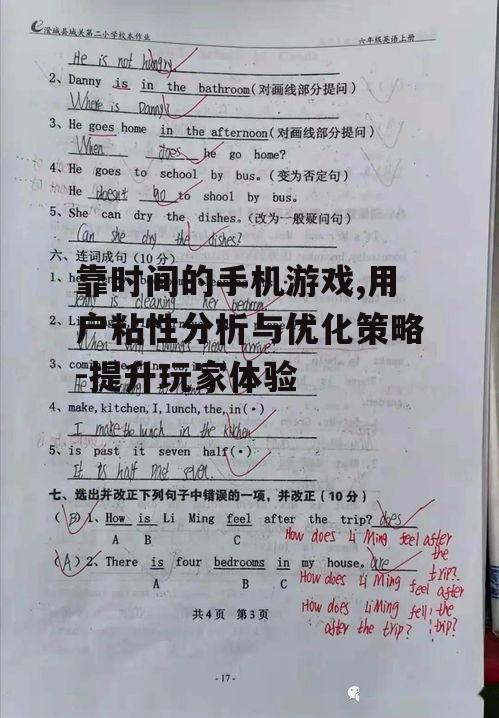 澄城县城关第二小学校本作业 六年级英语上册
He is not hungry
2、Danny is in the bathroom(对画线部分提问)
Where is Danny?
3、He goes home in the afternoon(对画线部分提问)
When does he go home?
4、He goes to school by bus.(变为否定句)
He doesn't go to shool by bus.
5、She can dry the dishes.(改为一般疑问句)
Can she dry the dishes?
六、连词成句(10分)
靠时间的手机游戏,用
is cleaning her bedroom
户粘性分析与优化策略
-提升玩家体验
4、make,kitchen,I,lunch,the,in(·)
I make the lunch in the kitchen
5、is past it seven half(·)
It is half past seven.
七、选出并改正下列句子中错误的一项,并改正(10分)
(B)1、How is Li Ming feel after the trip? does
A B C
How does Li Ming feel after the trip?
(A)2、There is four bedrooms in my house. are
A B C
How does Li Ming feel after the trip?
How does Li Ming fell after the trip?
共4页 第3页
-17-